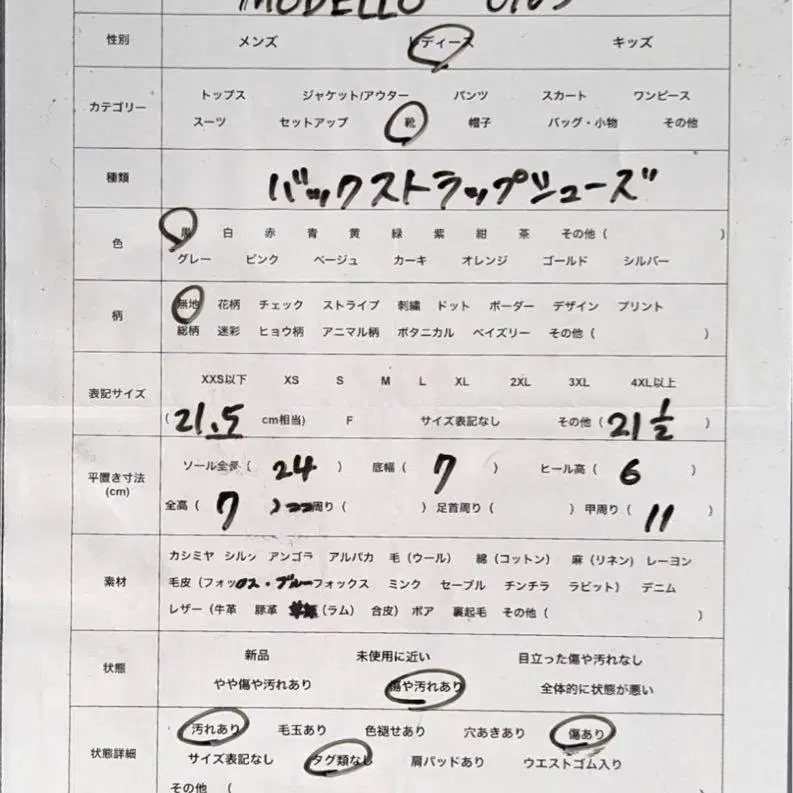 MODELLO
性別 メンズ レディース キッズ
カテゴリー
トップス ジャケット/アウター パンツ スカート ワンピース
スーツ セットアップ 靴 帽子 バッグ・小物 その他
種類 バックストラップシューズ
色
黒 白 赤 青 黄 緑 紫 紺 茶 その他 ( )
グレー ピンク ベージュ カーキ オレンジ ゴールド シルバー
柄
無地 花柄 チェック ストライプ 刺繍 ドット ボーダー デザイン プリント
総柄 迷彩 ヒョウ柄 アニマル柄 ボタニカル ペイズリー その他 ( )
表記サイズ
XXS以下 XS S M L XL 2XL 3XL 4XL以上
( 21.5 cm相当) F サイズ表記なし その他 ( 21 1/2 )
平置き寸法
(cm)
ソール全長 ( 24 ) 底幅 ( 7 ) ヒール高 ( 6 )
全高 ( 7 ) 周り ( ) 足首周り ( ) 甲周り ( 11 )
素材
カシミヤ シルク アンゴラ アルパカ 毛 (ウール) 綿 (コットン) 麻 (リネン) レーヨン
毛皮 (フォックス・ブルーフォックス ミンク セーブル チンチラ ラビット) デニム
レザー (牛革 豚革 (ラム) 合皮) ボア 裏起毛 その他 ( )
状態
新品 未使用に近い 目立った傷や汚れなし
やや傷や汚れあり 傷や汚れあり 全体的に状態が悪い
状態詳細
汚れあり 毛玉あり 色褪せあり 穴あきあり 傷あり
サイズ表記なし タグ類なし 肩パッドあり ウエストゴム入り
その他 (